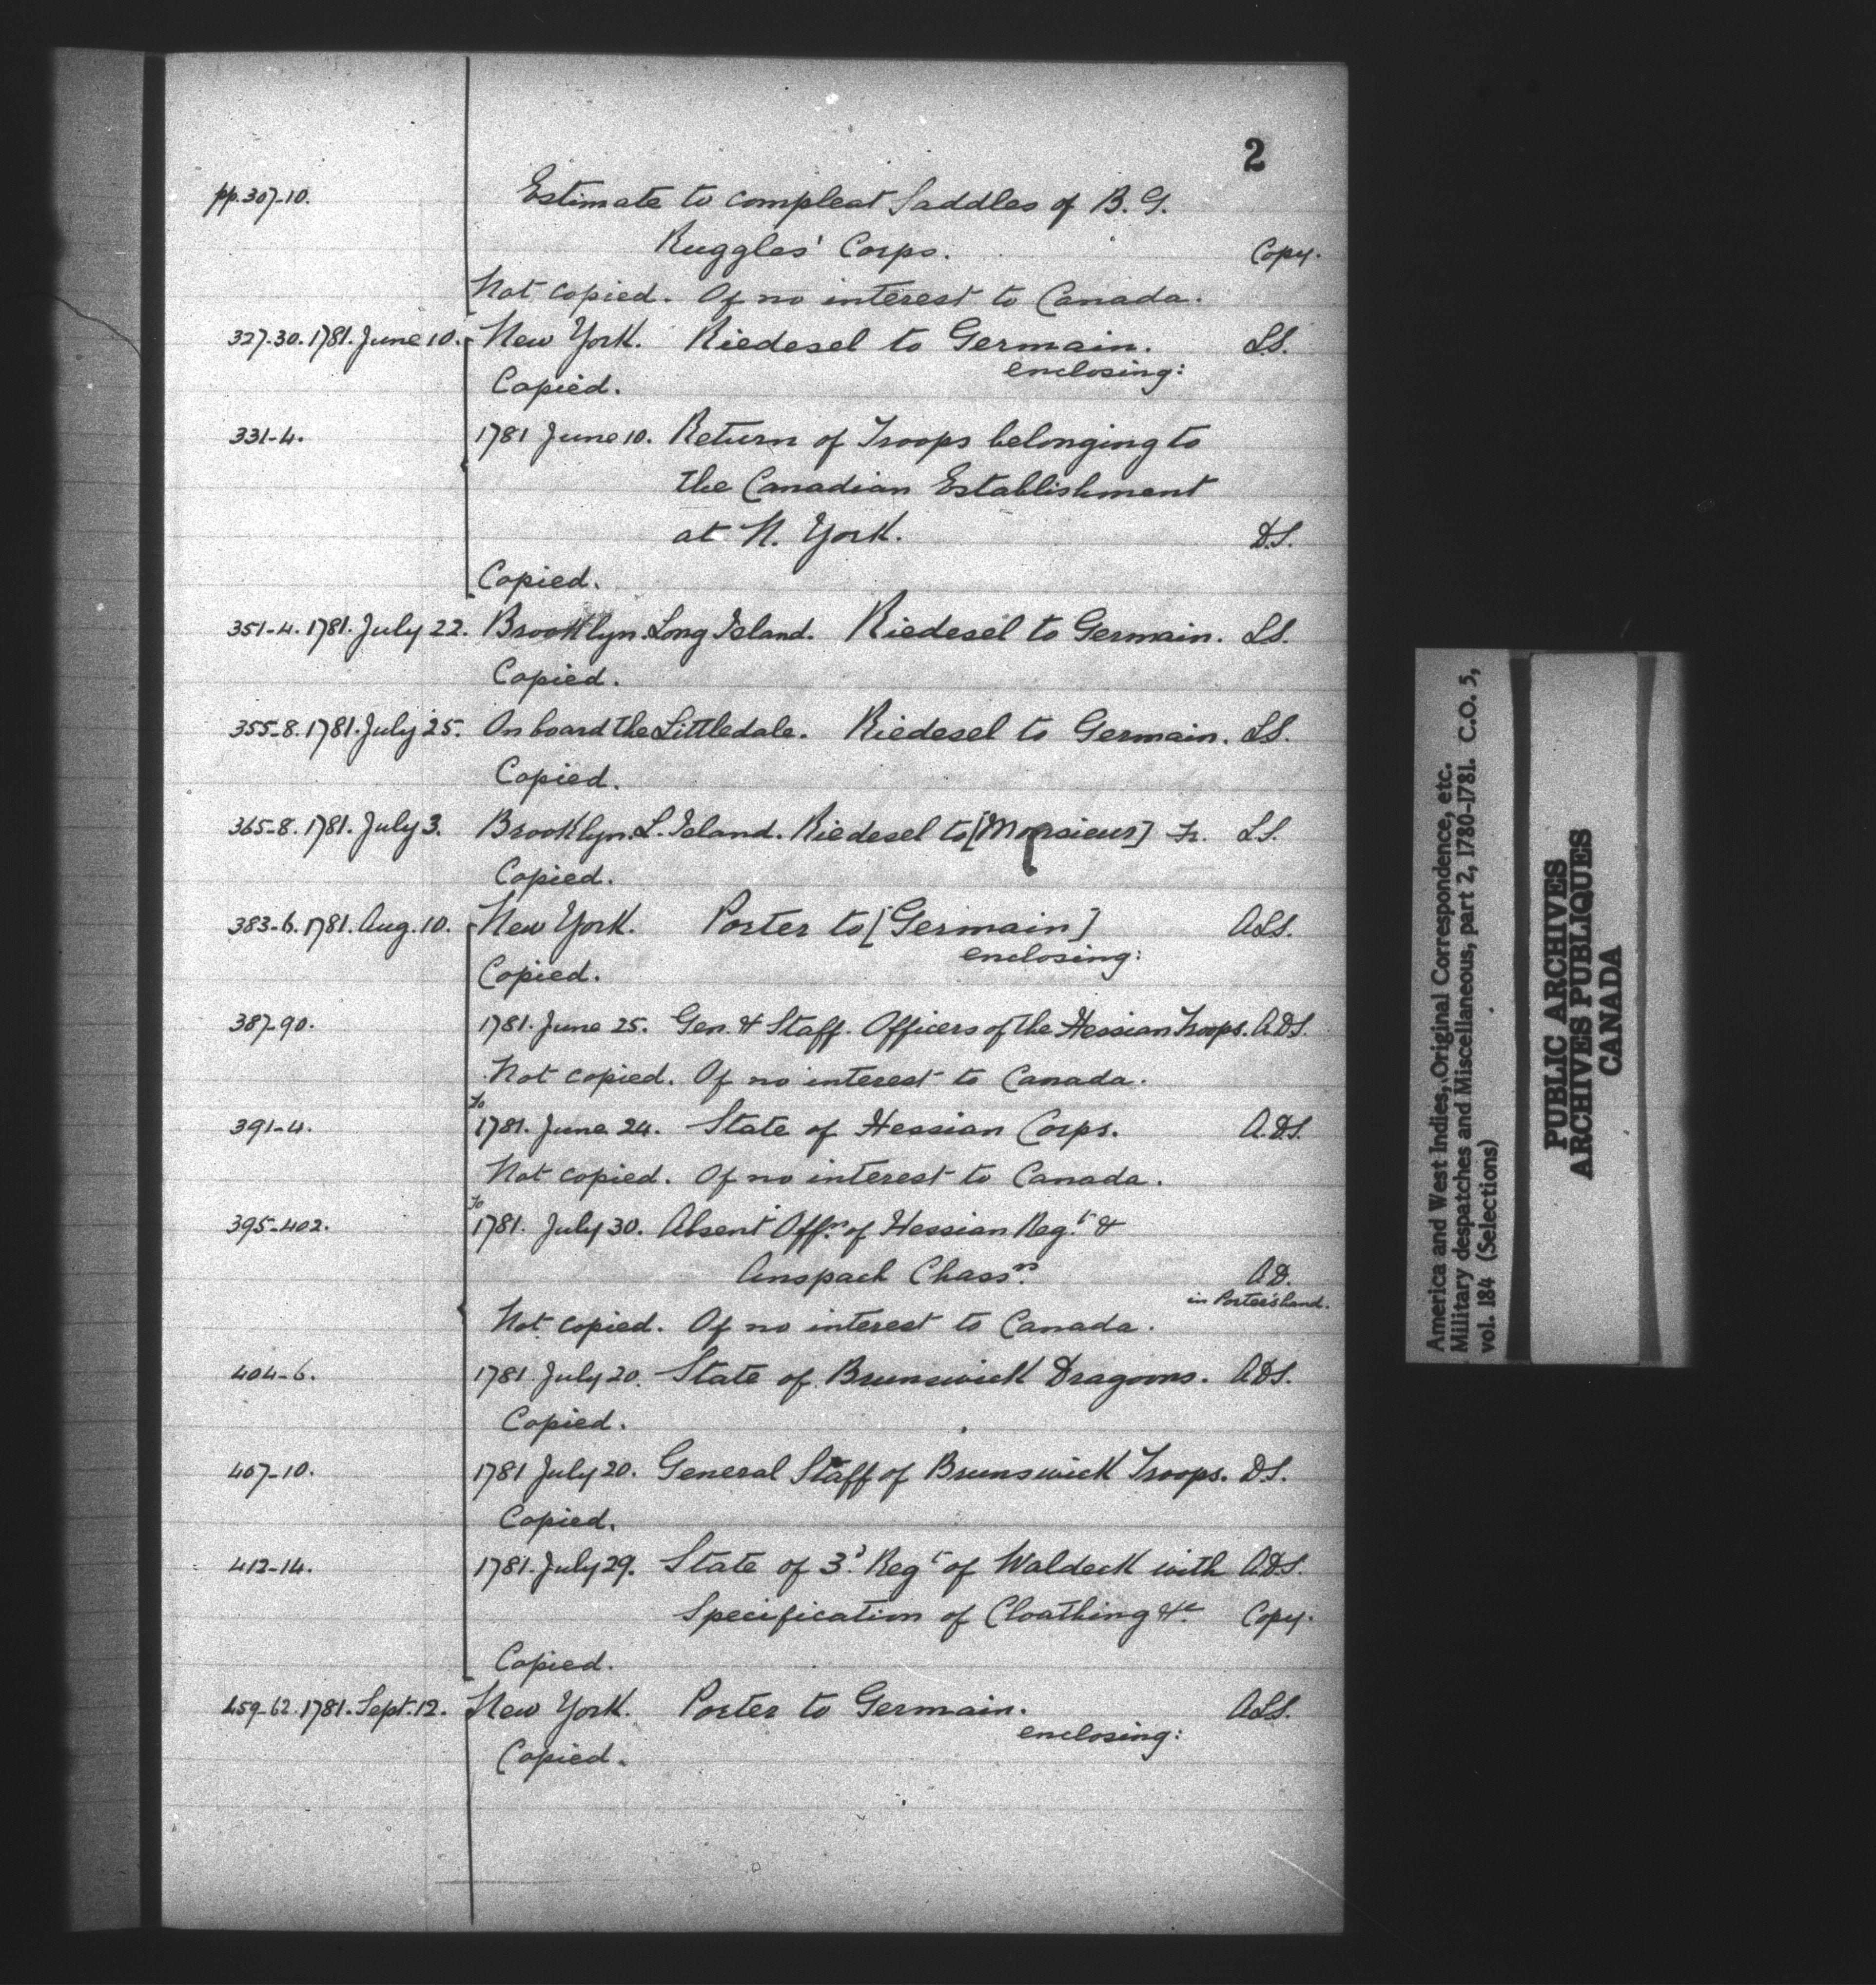 2
pp. 307-10. Estimate to compleat Saddles of B. G.
Ruggles' Corps. Copy.
Not copied. Of no interest to Canada.
327-30. 1781. June 10. New York. Riedesel to Germain. L.S.
enclosing:
Copied.
331-4. 1781 June 10. Return of Troops belonging to
the Canadian Establishment
at N. York. D.S.
Copied.
351-4. 1781. July 22. Brooklyn. Long Island. Riedesel to Germain. L.S.
Copied.
355-8. 1781. July 25. On board the Littledale. Riedesel to Germain. L.S.
Copied.
365-8. 1781. July 3. Brooklyn. L. Island. Riedesel to [Monsieur] Fr. L.S.
Copied.
383-6. 1781. Aug. 10. New York. Porter to [Germain] A.L.S.
enclosing:
Copied.
387-90. 1781. June 25. Gen. & Staff. Officers of the Hessian Troops. A.D.S.
Not copied. Of no interest to Canada.
391-4. To 1781. June 24. State of Hessian Corps. A.D.S.
Not copied. Of no interest to Canada.
395-402. To 1781. July 30. Absent Offrs. of Hessian Regt. &
Anspach Chassrs. A.D.
in Porter's hand.
Not copied. Of no interest to Canada.
404-6. 1781 July 20. State of Brunswick Dragoons. A.D.S.
Copied.
407-10. 1781 July 20. General Staff of Brunswick Troops. D.S.
Copied.
412-14. 1781. July 29. State of 3d. Regt of Waldeck with A.D.S.
Specification of Cloathing &c. Copy.
Copied.
459-62. 1781. Sept. 12. New York. Porter to Germain. A.L.S.
enclosing:
Copied.
America and West Indies, Original Correspondence, etc.
Military despatches and Miscellaneous, part 2, 1780-1781. C.O. 5,
vol. 184 (Selections)
PUBLIC ARCHIVES
ARCHIVES PUBLIQUES
CANADA